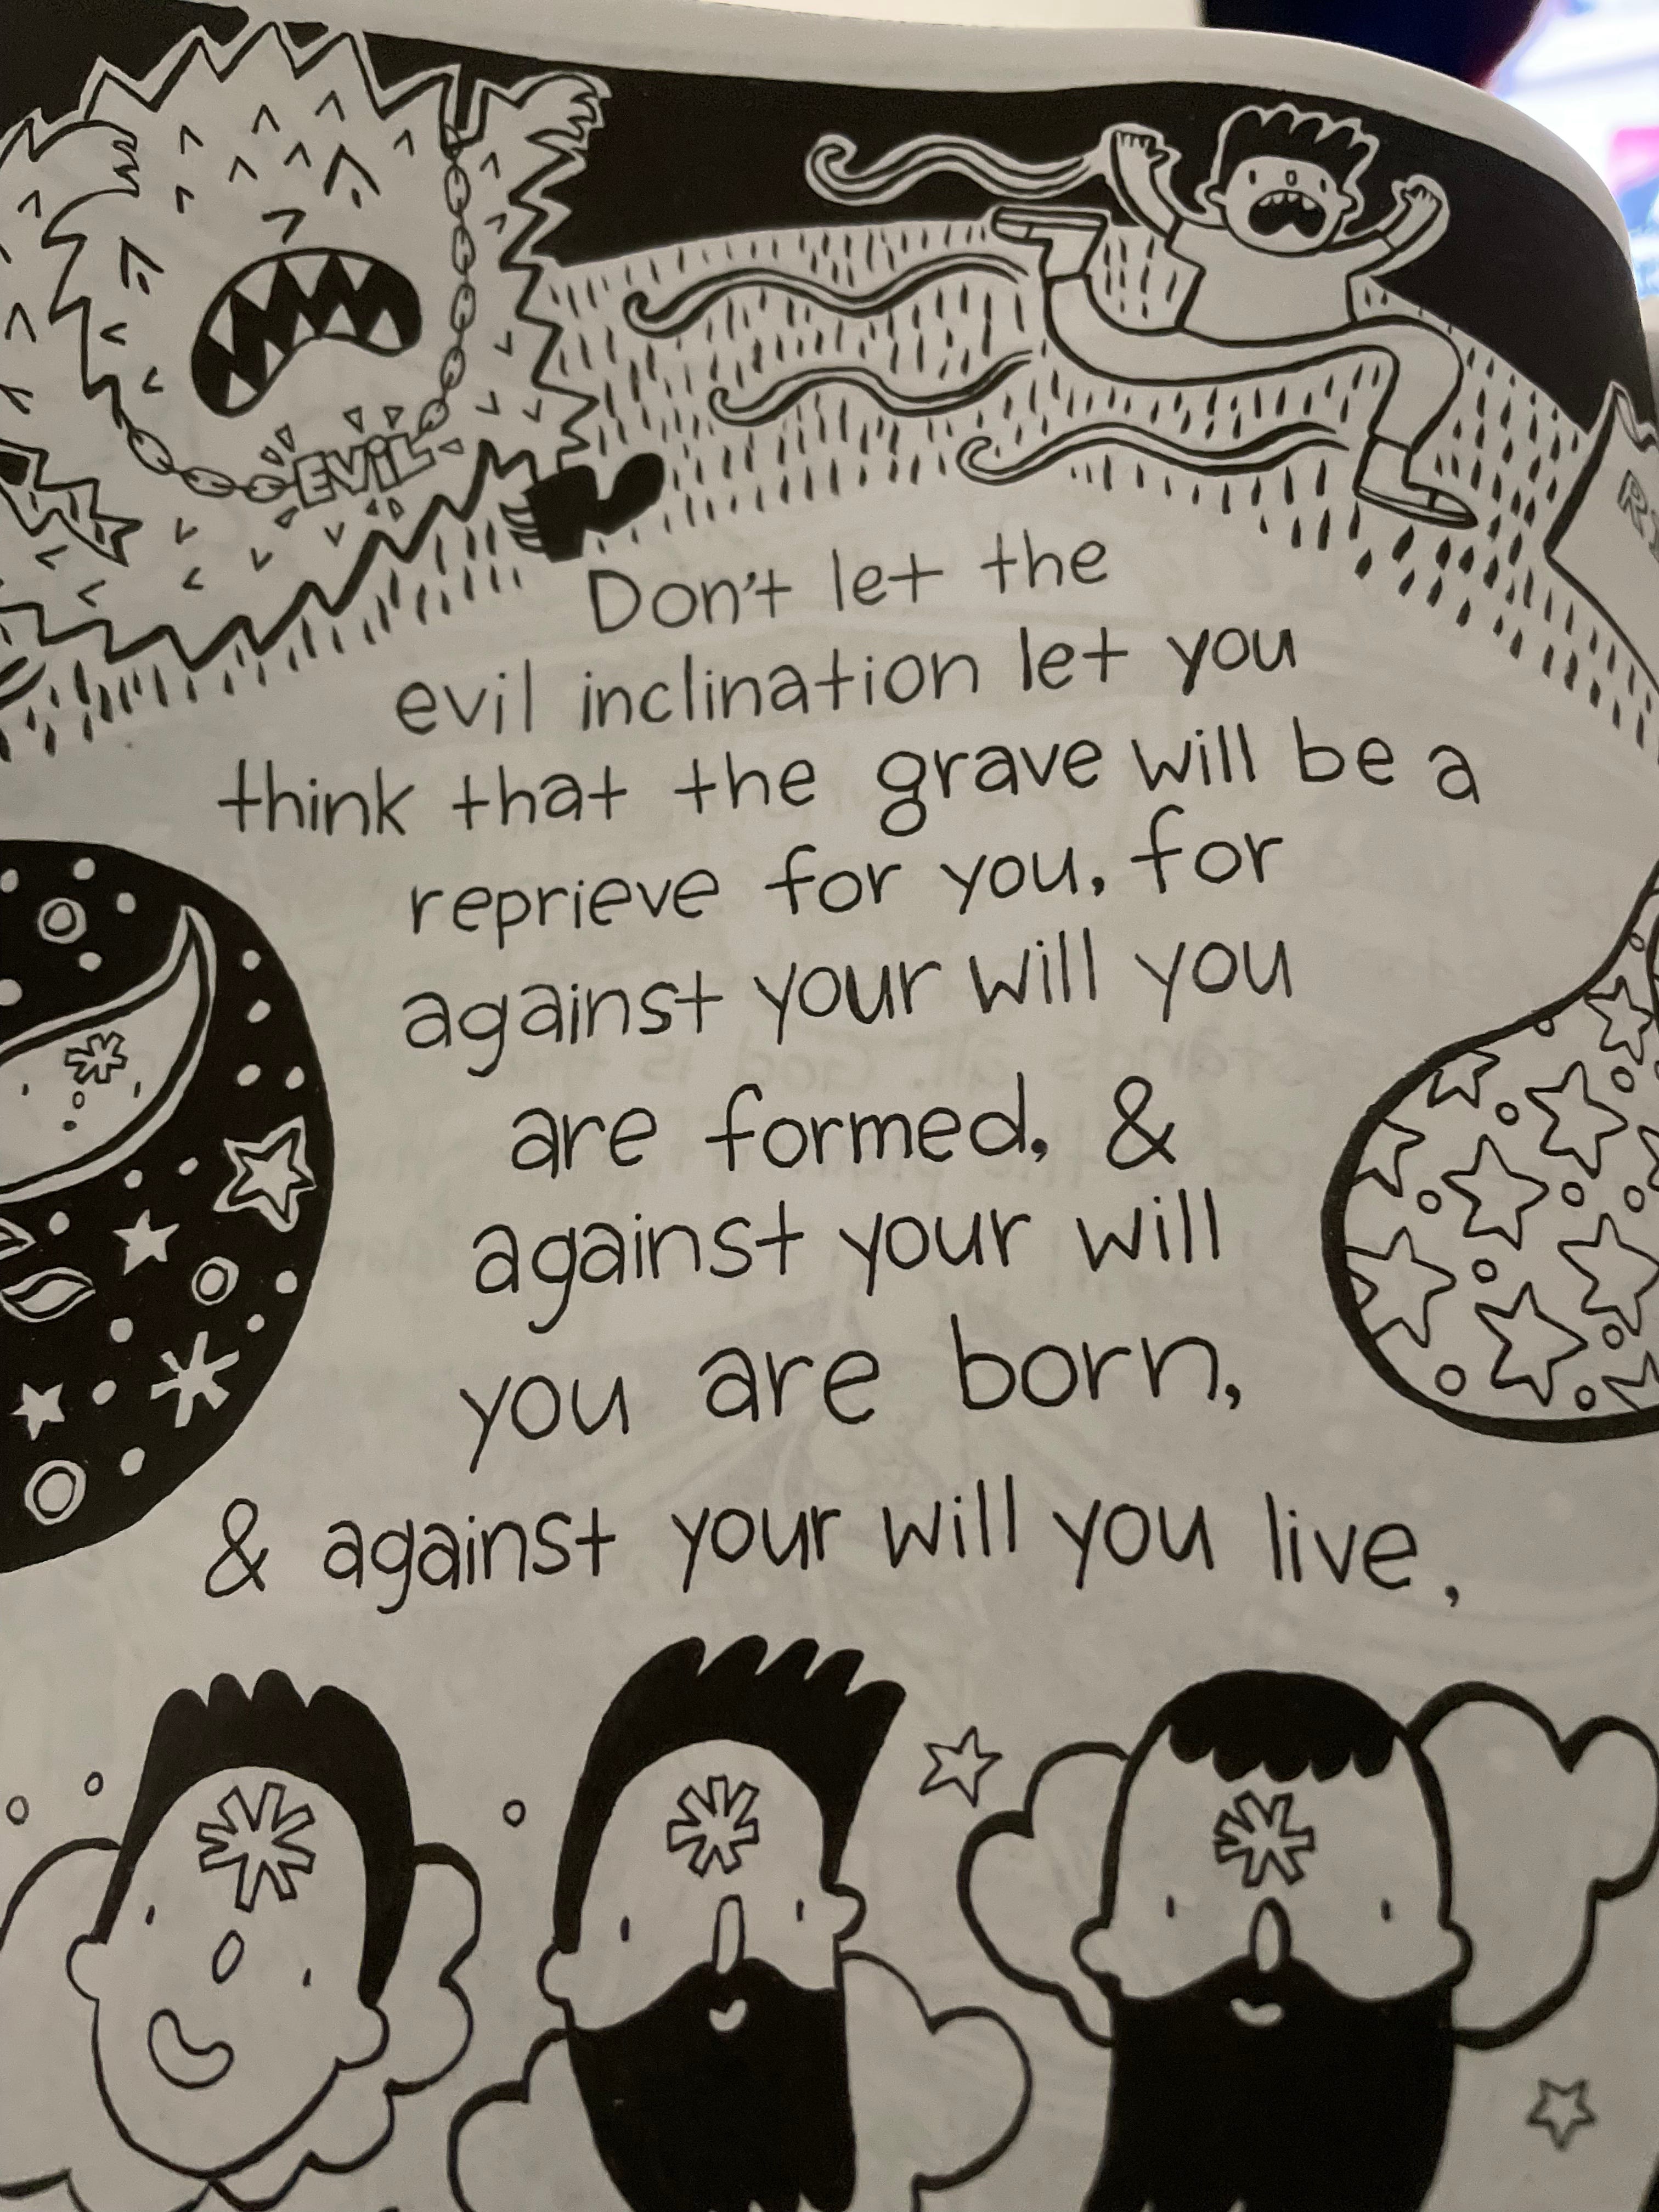 EVIL
Don't let the
evil inclination let you
think that the grave will be a
reprieve for you, for
against your will you
are formed, &
against your will
you are born,
& against your will you live,